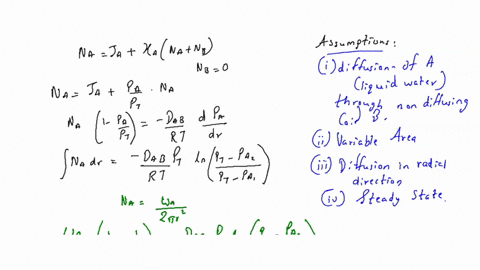 N_A = J_A + x_A (N_A + N_B)
N_B = 0
N_A = J_A + P_A/P_T . N_A
N_A (1 - P_A/P_T) = -D_AB/RT dP_A/dr
∫N_A dr = -D_AB P_T/RT ln((P_T - P_A2)/(P_T - P_A1))
N_A = W_A/2πr²
Assumptions:
(i) diffusion of A
(liquid water)
through non diffusing
B.
(ii) Variable Area
(iii) Diffusion in radial
direction
(iv) Steady State.